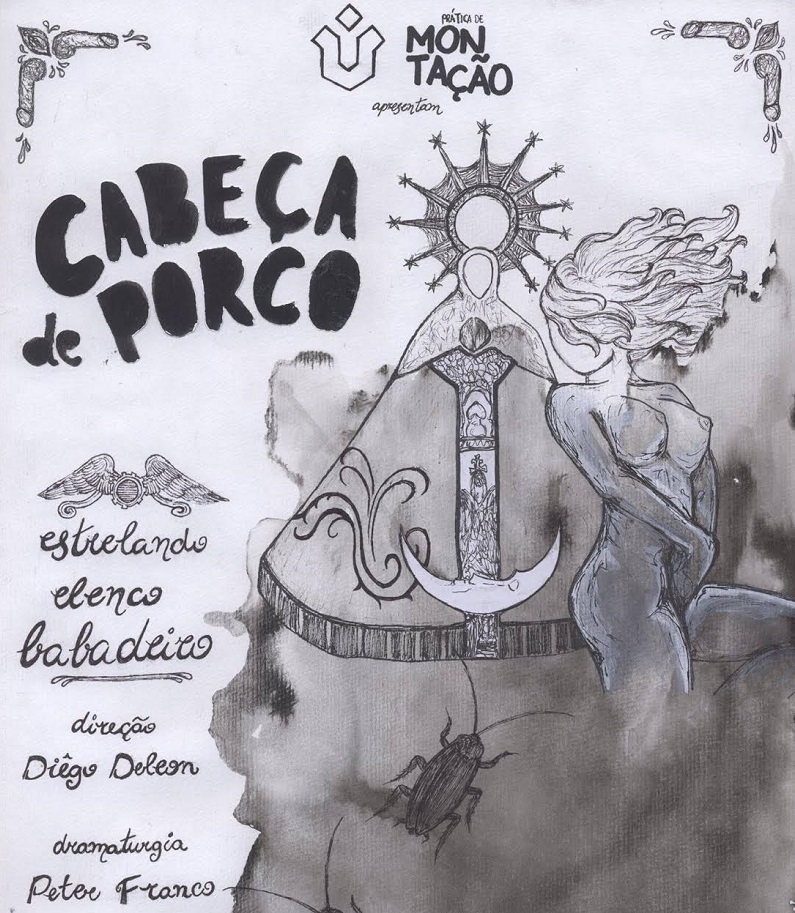 PRÁTICA DE
MON
TAÇÃO
apresentam
CABEÇA
de PORCO
estrelando
elenco
babadeiro
direção
Diêgo Deleon
dramaturgia
Peter Franco